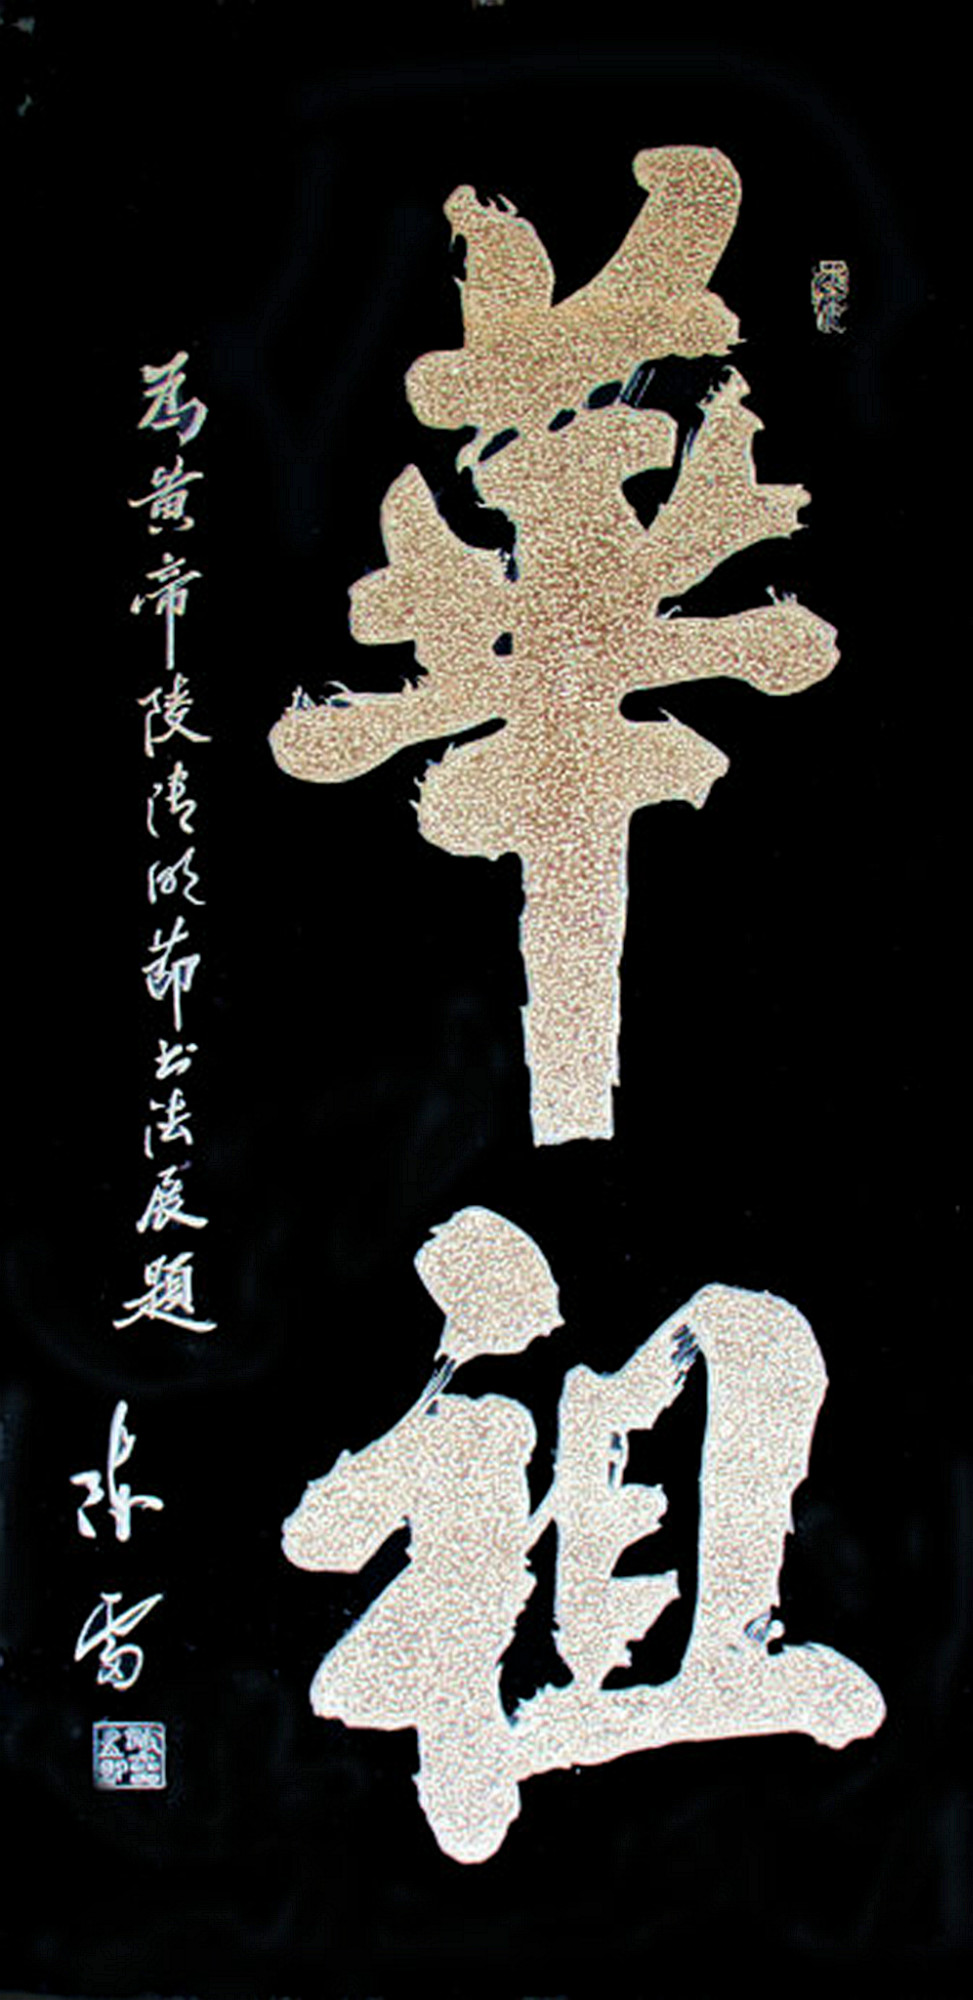 華祖
為黄帝陵清明節书法展題
陈雷